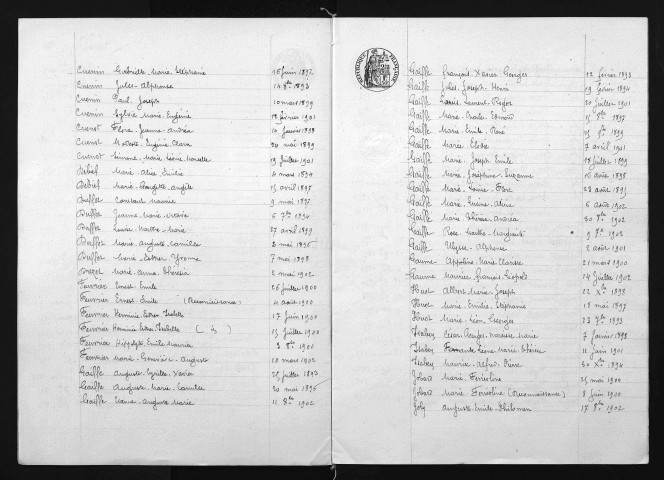 Cuenin Gabrielle Marie Stéphanie 16 juin 1892
Cuenin Jules Alphonse 14 8bre 1893
Cuenin Paul Joseph 10 mars 1899
Cuenin Sylvie Marie Eugénie 12 février 1901
Cuenot Flore Jeanne Andréa 10 janvier 1898
Cuenot Eugénie Clara 20 mai 1899
Cuenot Simone Marie 19 juillet 1901
Débief Marie Alice Emilie 4 mars 1894
Débief Marie Angèle 15 avril 1897
Duffet Constant Maurice 9 mai 1897
Duffet Jeanne Marie 6 7bre 1894
Duffet Louise Marthe Marie 27 avril 1899
Duffet Marie Auguste Camille 2 mai 1896
Duffet Marie Esther Yvonne 7 mai 1898
Marie Anna 2 mai 1902
Feuvrier Ernest Emile 26 juillet 1900
Feuvrier Ernest Emile (Reconnaissance) 4 août 1900
Feuvrier Herminie 17 juin 1900
Feuvrier Herminie ( d ) 15 juillet 1900
Feuvrier Hippolyte Emile Maurice 3 8bre 1900
Feuvrier Marie Auguste 10 mars 1902
Gaiffe Auguste Xavier 25 juillet 1893
Gaiffe Auguste Marie Camille 20 mai 1896
Gaiffe Auguste Marie 11 8bre 1902
RÉPUBLIQUE FRANÇAISE
Gaiffe François Xavier Georges 12 février 1893
Gaiffe Jules Joseph Henri 19 février 1894
Gaiffe Laurent 20 juillet 1901
Gaiffe Marie Charles Edmond 15 8bre 1897
Gaiffe Marie Emile René 15 9bre 1899
Gaiffe Marie Elodie 7 avril 1901
Gaiffe Marie Joseph Emile 18 juillet 1899
Gaiffe Marie Joséphine Suzanne 16 août 1898
Gaiffe Marie Louise 28 août 1895
Gaiffe Marie Alice 6 août 1902
Gaiffe Marie Thérèse Andréa 30 8bre 1902
Gaiffe Rose Marthe Marguerite 9 8bre 1902
Gaiffe Ulysse Alphonse 2 août 1901
Gaume Appoline Marie Clarisse 21 mars 1900
Gaume Maurice François Léopold 24 juillet 1902
Huot Albert Marie Joseph 22 Xbre 1898
Huot Marie Emilie Stéphanie 18 mai 1897
Huot Marie Léon Georges 23 7bre 1893
Isabey César Marie 7 janvier 1898
Isabey Fernande Marie Thérèse 11 juin 1901
Isabey Maurice Alfred Pierre 30 Xbre 1894
Jobard Marie 25 mai 1900
Jobard Marie (Reconnaissance) 8 juin 1900
Joly Auguste Emile Philomen 17 8bre 1902